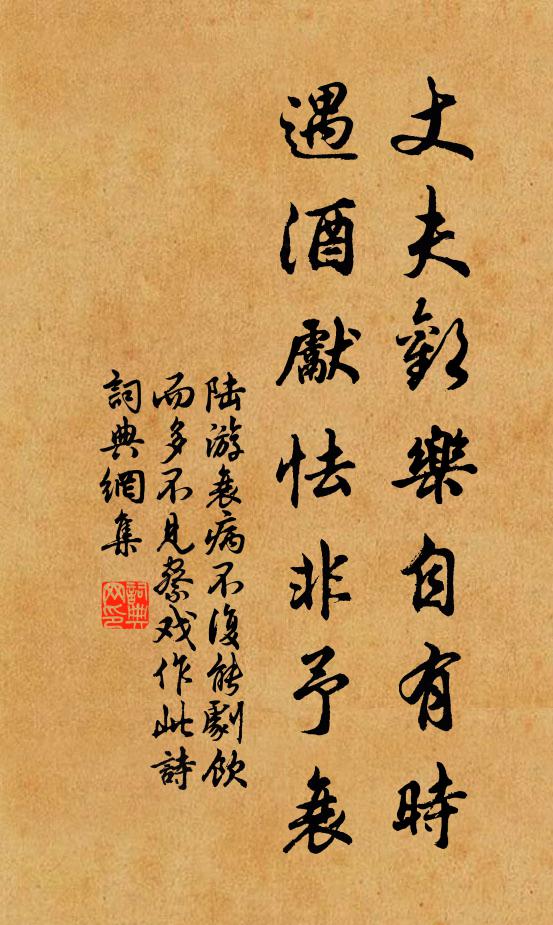 丈夫歡樂自有時
遇酒獻怯非予衰
陸游衰病不復能劇飲
而多不見察戏作此詩
詞典網集
詞典
网印